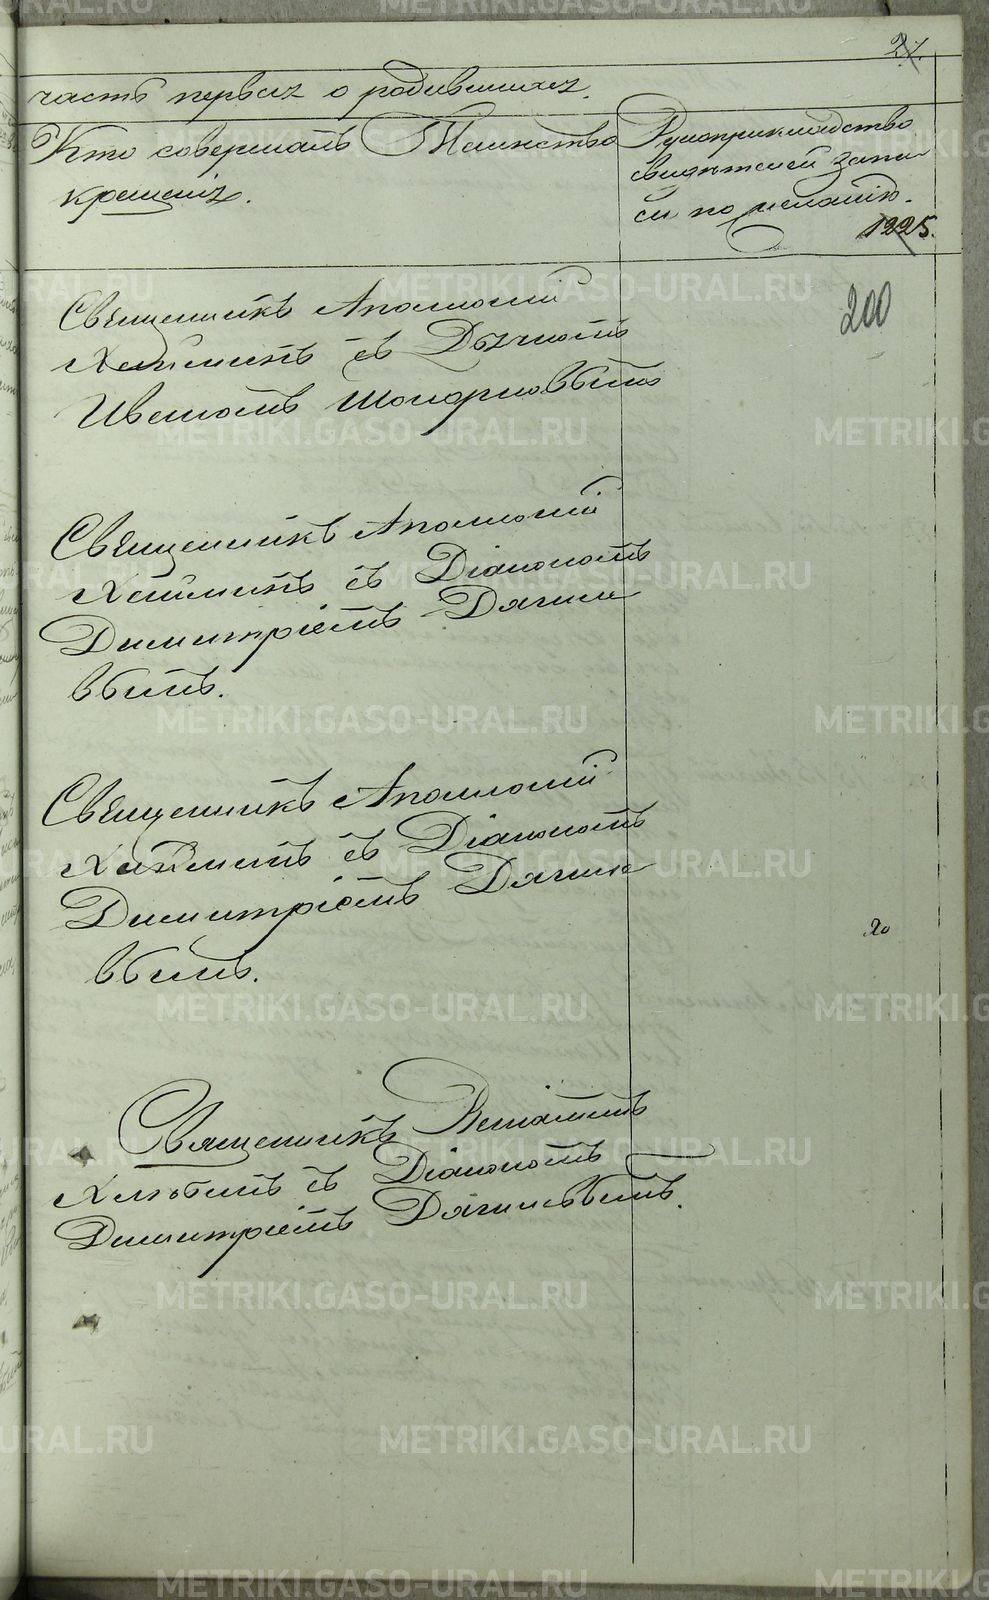 21.
часть первая о родившихся.
Кто совершалъ Таинство
крещенія.
Рукоприкладство
свидѣтелей запи-
си по желанію.
1225.
200
Священникъ Аполлоній
съ Дьячкомъ
Иваномъ
Священникъ Аполлоній
съ Діакономъ
Димитріемъ Дягиле-
вымъ.
Священникъ Аполлоній
съ Діакономъ
Димитріемъ Дягиле-
вымъ.
Священникъ
съ Діакономъ
Димитріемъ Дягилевымъ.
METRIKI.GASO-URAL.RU